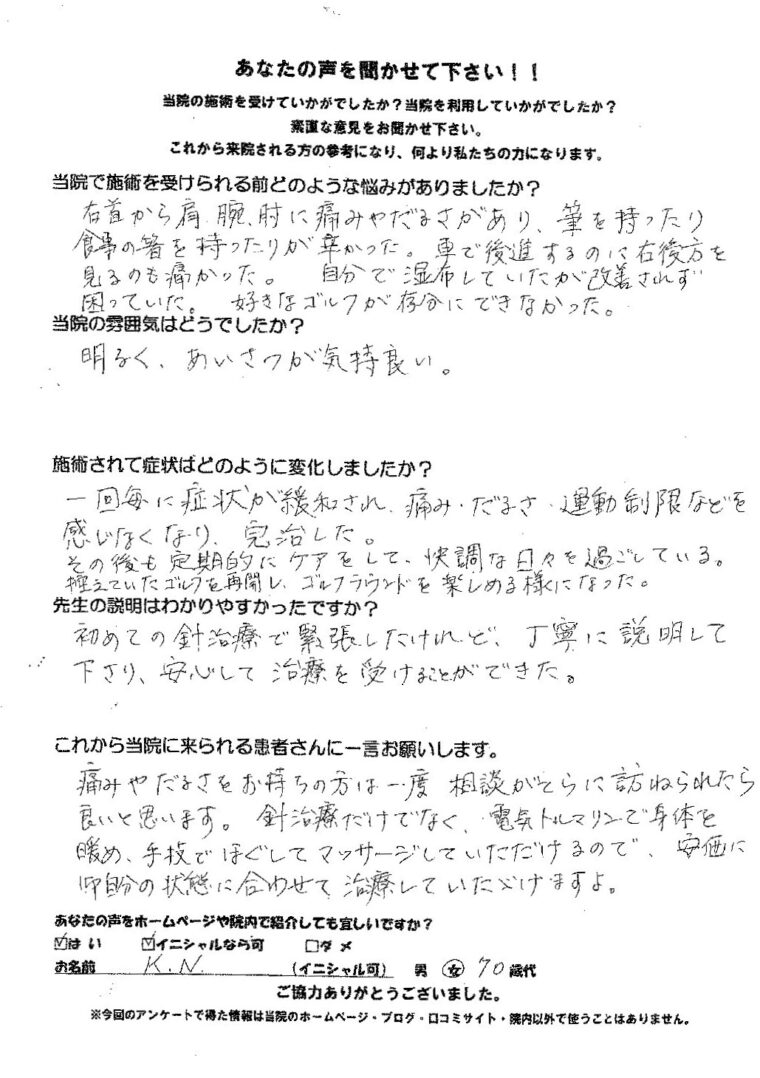 あなたの声を聞かせて下さい！！
当院の施術を受けていかがでしたか？当院を利用していかがでしたか？
素直な意見をお聞かせ下さい。
これから来院される方の参考になり、何より私たちの力になります。
当院で施術を受けられる前どのような悩みがありましたか？
右首から肩、腕、肘に痛みやだるさがあり、筆を持ったり
食事の箸を持ったりが辛かった。車で後進するのに右後方を
見るのも痛かった。 自分で湿布していたが改善されず
困っていた。 好きなゴルフが存分にできなかった。
当院の雰囲気はどうでしたか？
明るく、あいさつが気持良い。
施術されて症状はどのように変化しましたか？
一回毎に症状が緩和され、痛み・だるさ・運動制限などを
感じなくなり、完治した。
その後も定期的にケアをして、快調な日々を過ごしている。
控えていたゴルフを再開し、ゴルフラウンドを楽しめる様になった。
先生の説明はわかりやすかったですか？
初めての針治療で緊張したけれど、丁寧に説明して
下さり、安心して治療を受けることができた。
これから当院に来られる患者さんに一言お願いします。
痛みやだるさをお持ちの方は一度 相談がてらに訪ねられたら
良いと思います。 針治療だけでなく、電気トルマリンで身体を
暖め、手技でほぐしてマッサージしていただけるので、安価に
御自分の状態に合わせて治療していただけますよ。
あなたの声をホームページや院内で紹介しても宜しいですか？
☑はい ☑イニシャルなら可 □ダメ
お名前 K.N. (イニシャル可) 男 女 70歳代
ご協力ありがとうございました。
※今回のアンケートで得た情報は当院のホームページ・ブログ・口コミサイト・院内以外で使うことはありません。